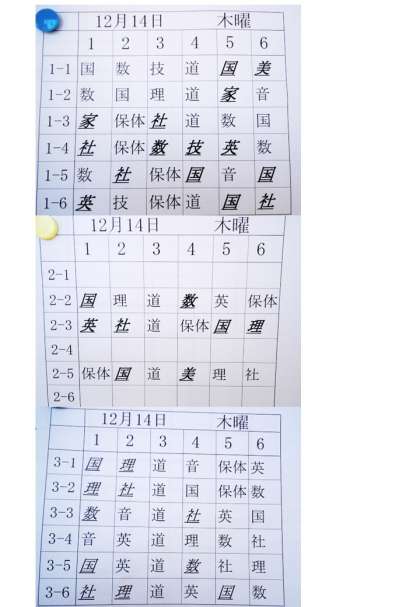 12月14日 木曜
1 2 3 4 5 6
1-1 国 数 技 道 国 美
1-2 数 国 理 道 家 音
1-3 家 保体 社 道 数 国
1-4 社 保体 数 技 英 数
1-5 数 社 保体 国 音 国
1-6 英 技 保体 道 国 社
12月14日 木曜
1 2 3 4 5 6
2-1
2-2 国 理 道 数 英 保体
2-3 英 社 道 保体 国 理
2-4
2-5 保体 国 道 美 理 社
2-6
12月14日 木曜
1 2 3 4 5 6
3-1 国 理 道 音 保体 英
3-2 理 社 道 国 保体 数
3-3 数 音 道 社 英 国
3-4 音 英 道 理 数 社
3-5 国 英 道 数 社 理
3-6 社 理 道 英 国 数